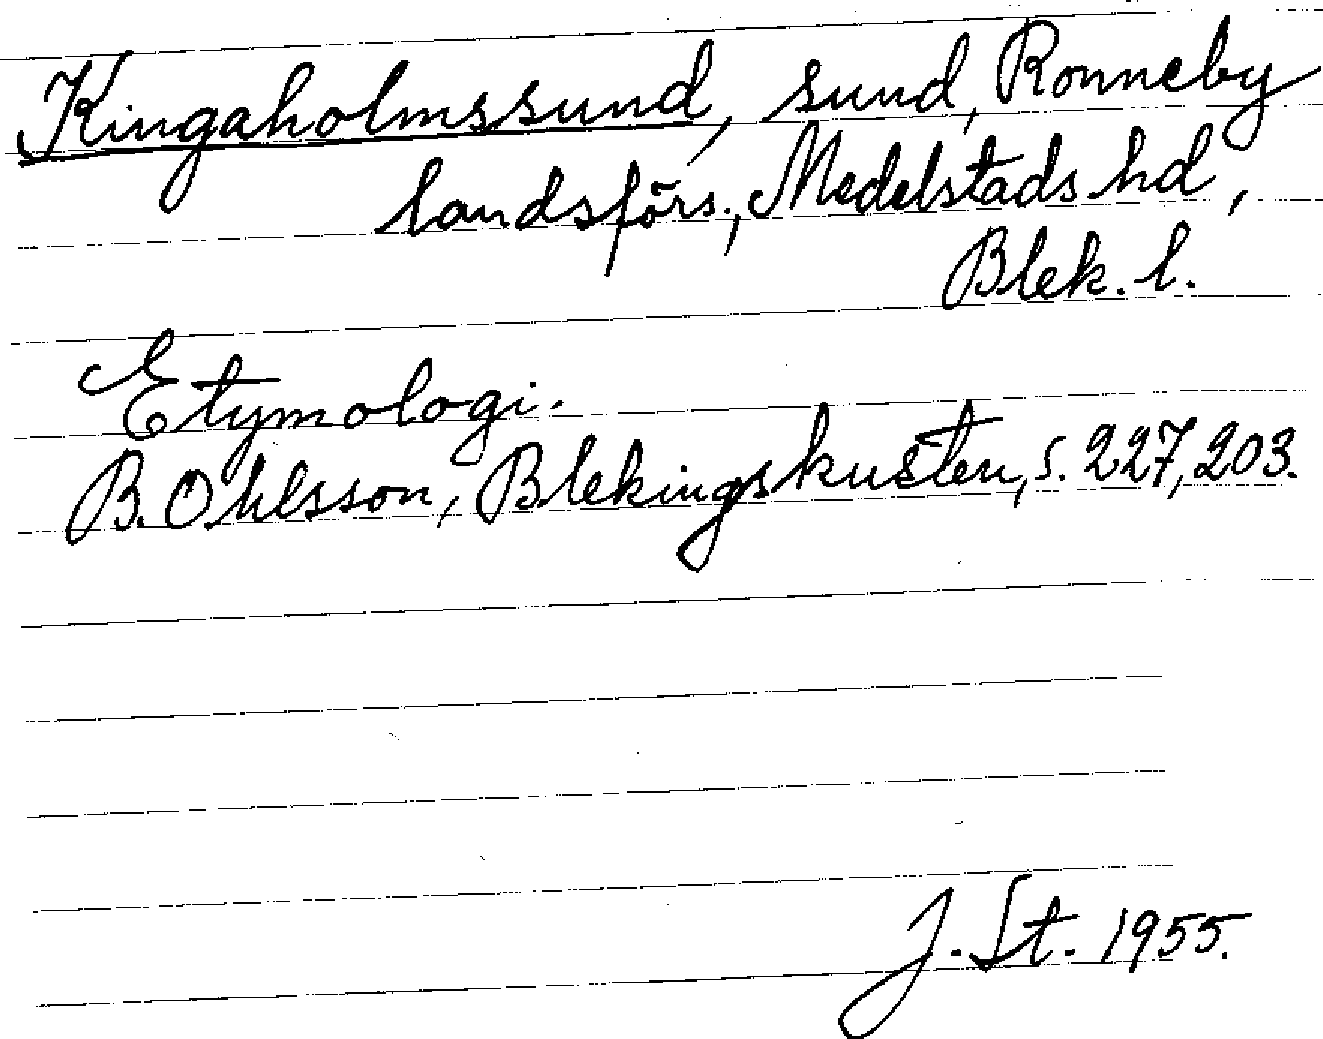 Kingaholmssund, sund, Ronneby
landsförs., Medelstads hd,
Blek. l.
Etymologi.
B. Ohlsson, Blekingskusten, s. 227, 203.
J. St. 1955.